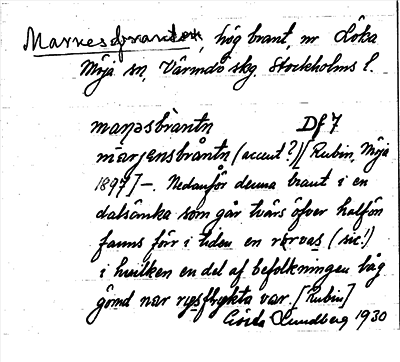 Marnesbranten, hög brant, nr Löka
Möja sn, Värmdö skg, Stockholms l.
maṇəsbràntn Df 7
märjensbråntn (accent?) [Rubin, Möja
1897] –. Nedanför denna brant i en
dalsänka som går tvärs öfver halfön
fanns förr i tiden en rörvas (sic!)
i hvilken en del af befolkningen låg
gömd när rysflykta var. [Rubin]
Gösta Lundberg 1930